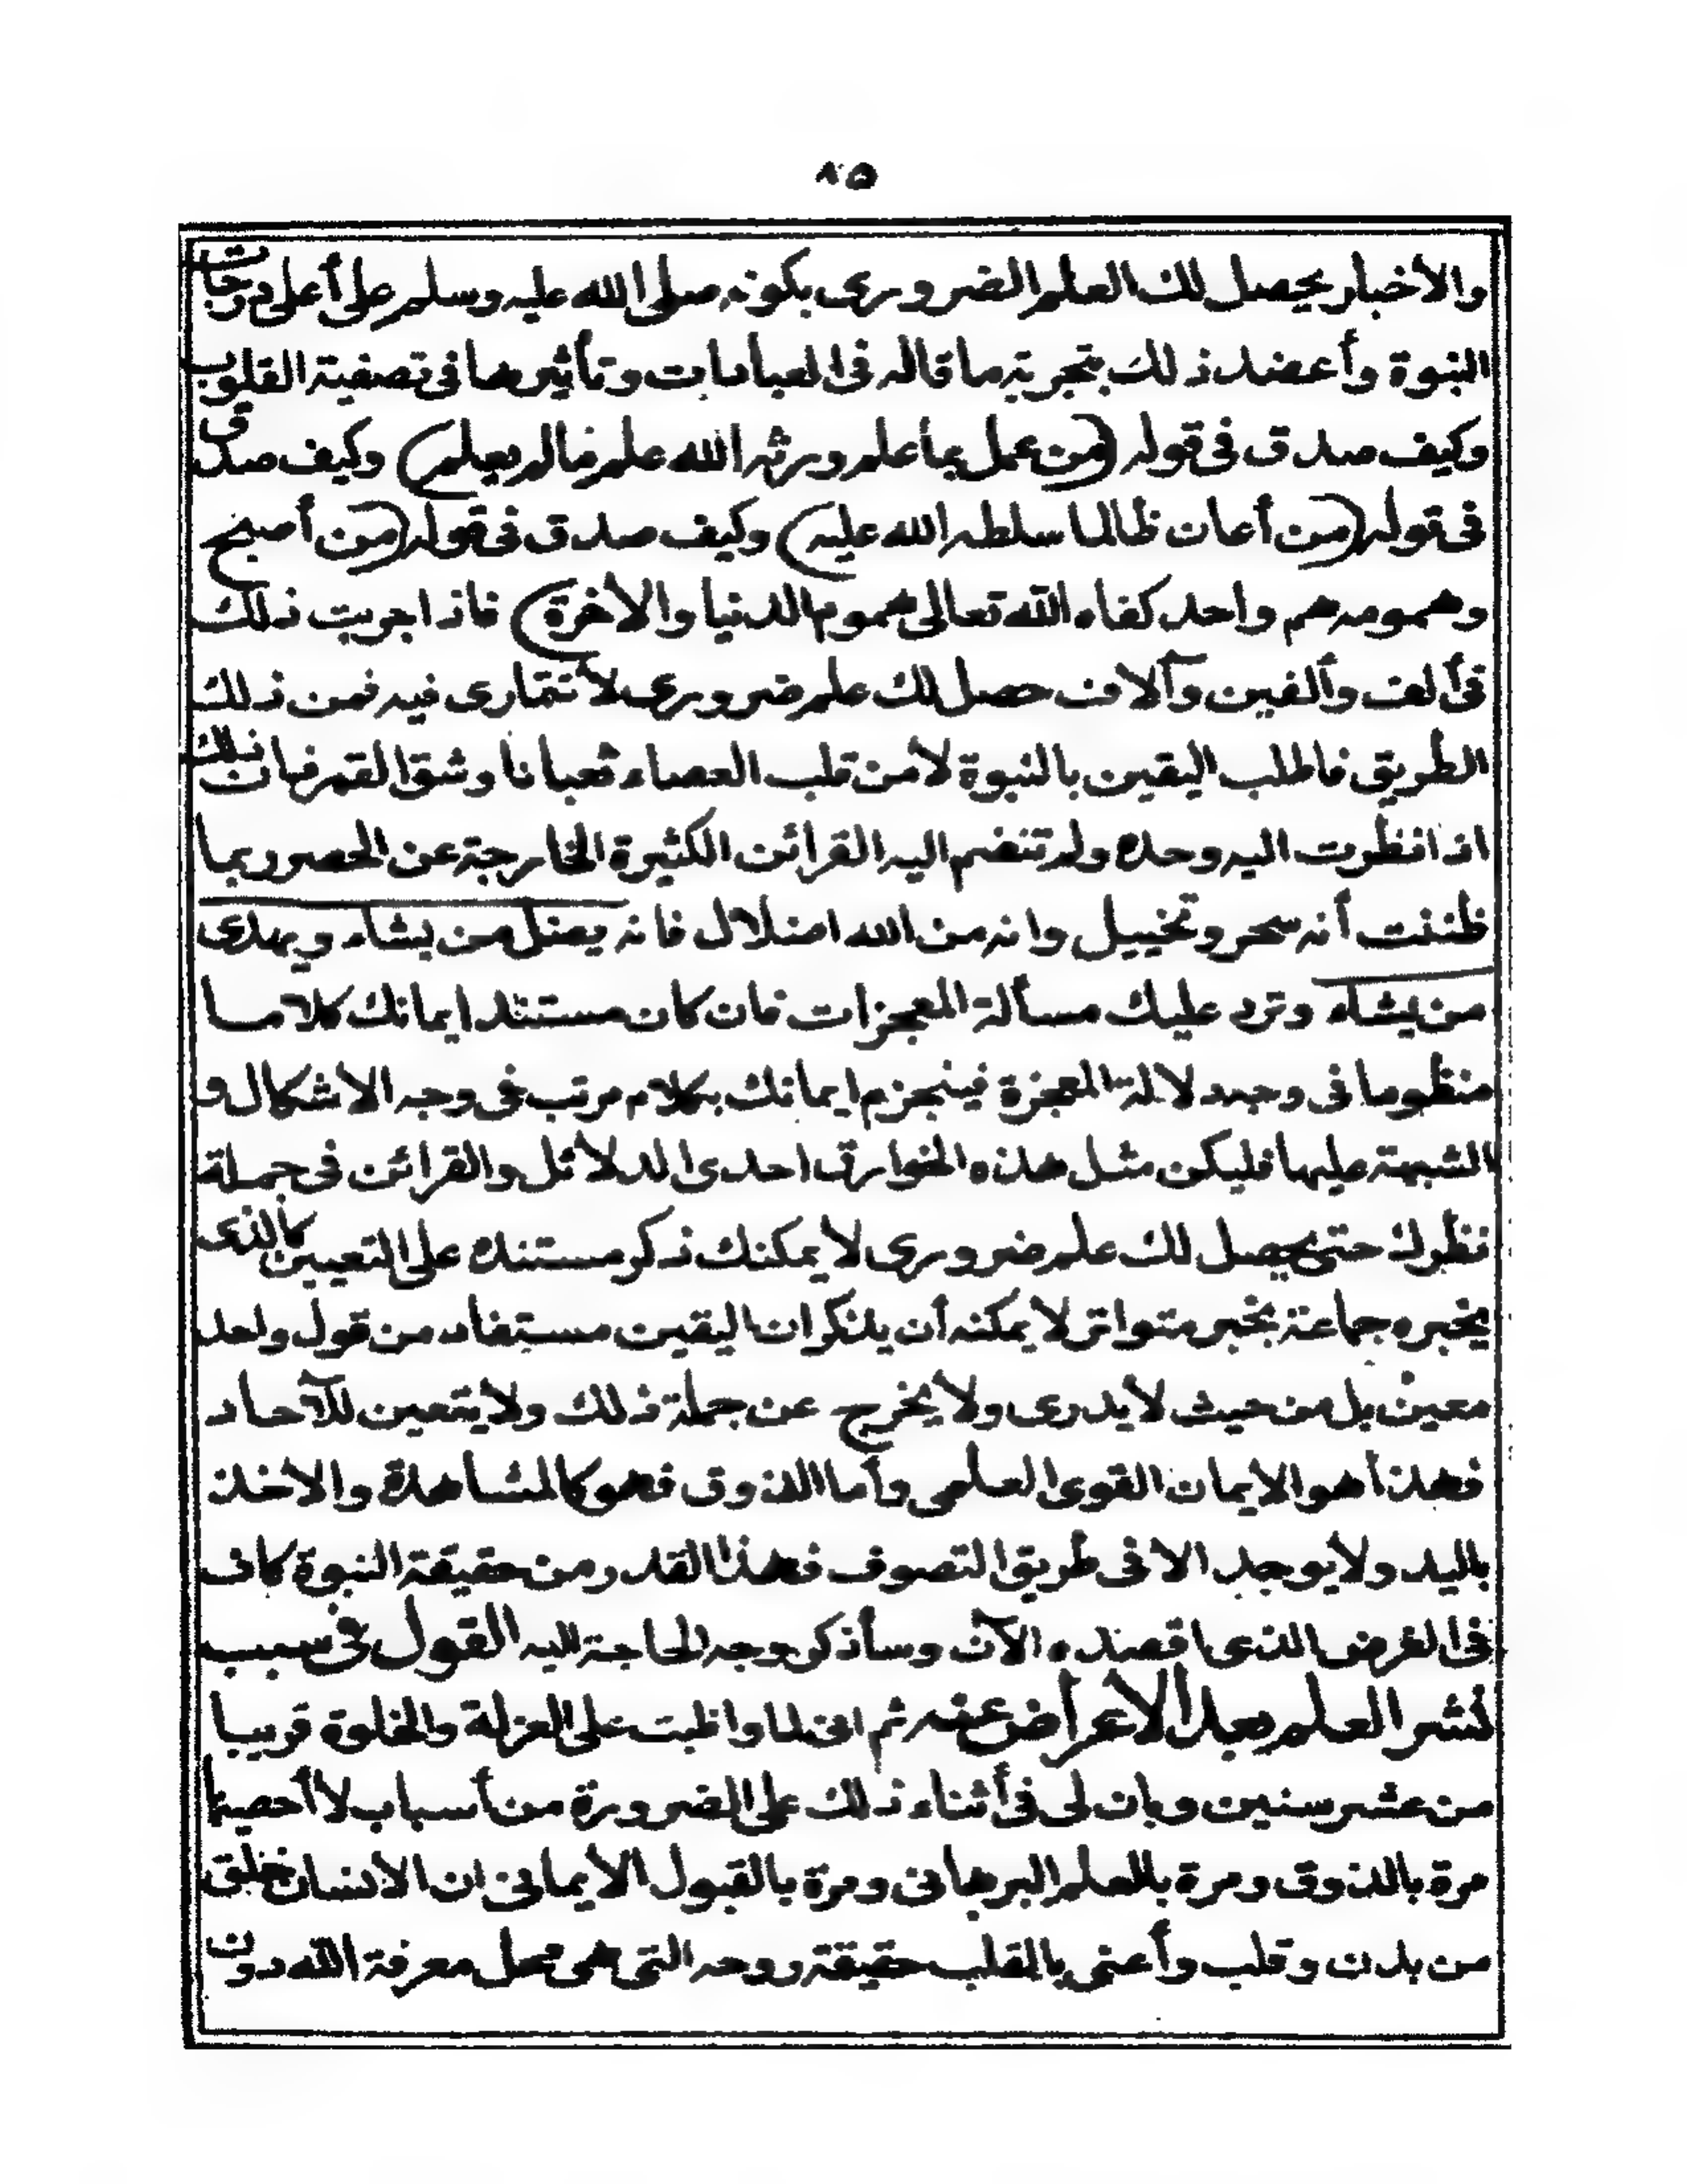 ٨٥
والأخبار يحصل لك العلم الضرورى بكونه صلى الله عليه وسلم على أعلى درجات
النبوة وأعضد ذلك بتجربة ما قاله فى العبادات وتأثيرها فى تصفية القلوب
وكيف صدق فى قوله (من عمل بما علم ورثه الله علم مالم يعلم) وكيف صدق
فى قوله (من أعان ظالما سلطه الله عليه) وكيف صدق فى قوله (من أصبح
وهمومه هم واحد كفاه الله تعالى هموم الدنيا والأخرة) فاذا جربت ذلك
فى ألف وألفين وآلاف حصل لك علم ضرورى لا تتمارى فيه فمن ذلك
الطريق فاطلب اليقين بالنبوة لا من قلب العصاء ثعبانا وشق القمر فان ذلك
اذا نظرت اليه وحده ولم تنضم اليه القرائن الكثيرة الخارجة عن الحصر وربما
ظننت أنه سحر وتخييل وانه من الله اضلال فانه يضل من يشاء ويهدى
من يشاء وترد عليك مسألة المعجزات فان كان مستندا يمانك كلاما
منظوما فى وجه دلالة المعجزة فينجزم ايمانك بكلام مرتب فى وجه الاشكال و
الشبهة عليها فليكن مثل هذه الخوارق احدى الدلائل والقرائن فى جملة
نظرك حتى يحصل لك علم ضرورى لا يمكنك ذكر مستنده على التعيين كالذى
يخبره جماعة بخبر متواتر لا يمكنه أن يذكر ان اليقين مستفاد من قول واحد
معين بل من حيث لا يدرى ولا يخرج عن جملة ذلك ولا يتعين للآحاد
فهذا هو الايمان القوى العلمى وأما الذوق فهو كالمشاهدة والاخذ
باليد ولا يوجد الا فى طريق التصوف فهذا القدر من حقيقة النبوة كاف
فى الغرض الذى اقصده الآن وسأذكر وجه الحاجة اليه القول فى سبب
نشر العلم بعد الأعراض عنه ثم انى لما واظبت على العزلة والخلوة قريبا
من عشر سنين وبان لى فى أثناء ذلك على الضرورة من أسباب لا أحصيها
مرة بالذوق ومرة بالعلم البرهانى ومرة بالقبول الأيمانى ان الانسان خلق
من بدن وقلب وأعنى بالقلب حقيقة روحه التى هى محل معرفة الله دون